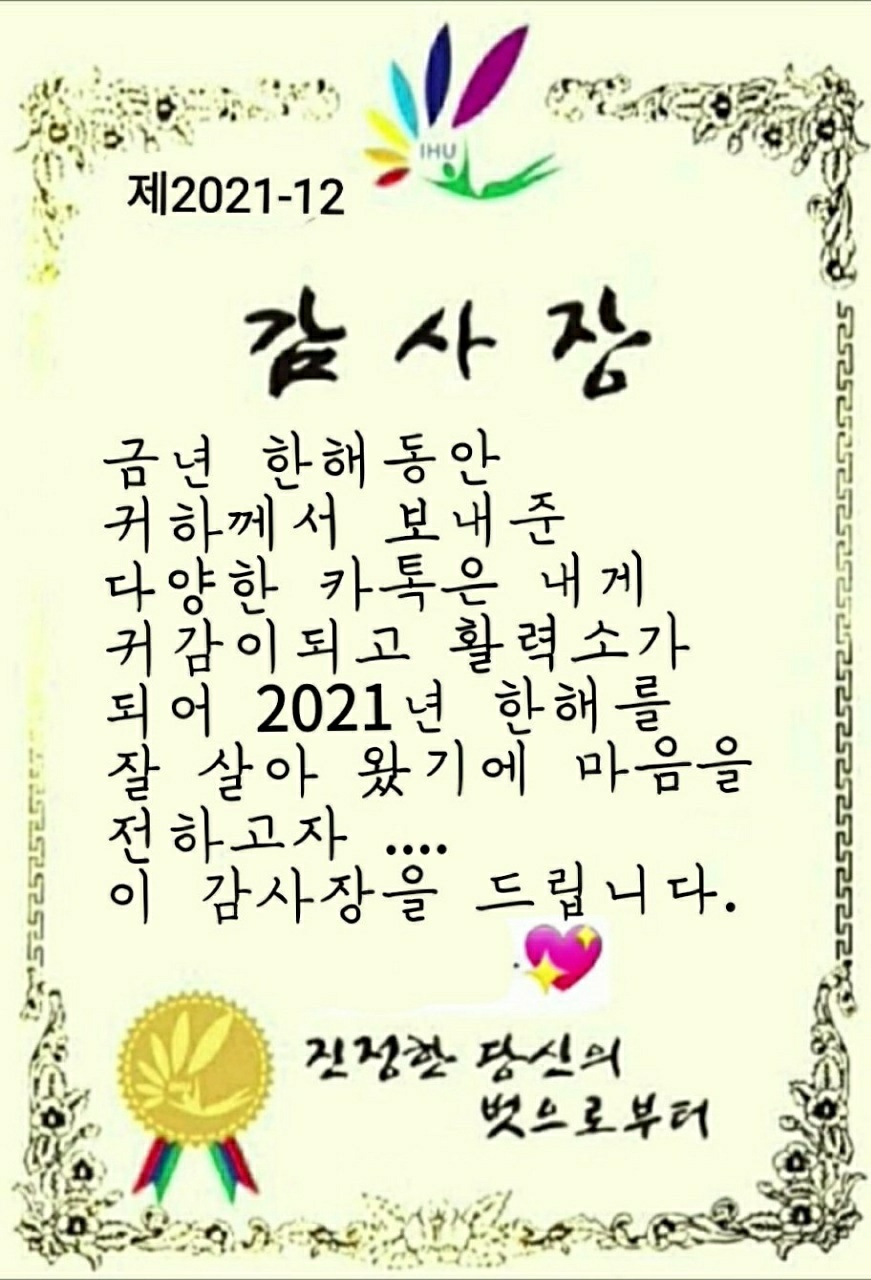 IHU
제2021-12
감 사 장
금년 한해동안
귀하께서 보내준
다양한 카톡은 내게
귀감이되고 활력소가
되어 2021년 한해를
잘 살아 왔기에 마음을
전하고자 ....
이 감사장을 드립니다.
진정한 당신의
벗으로부터